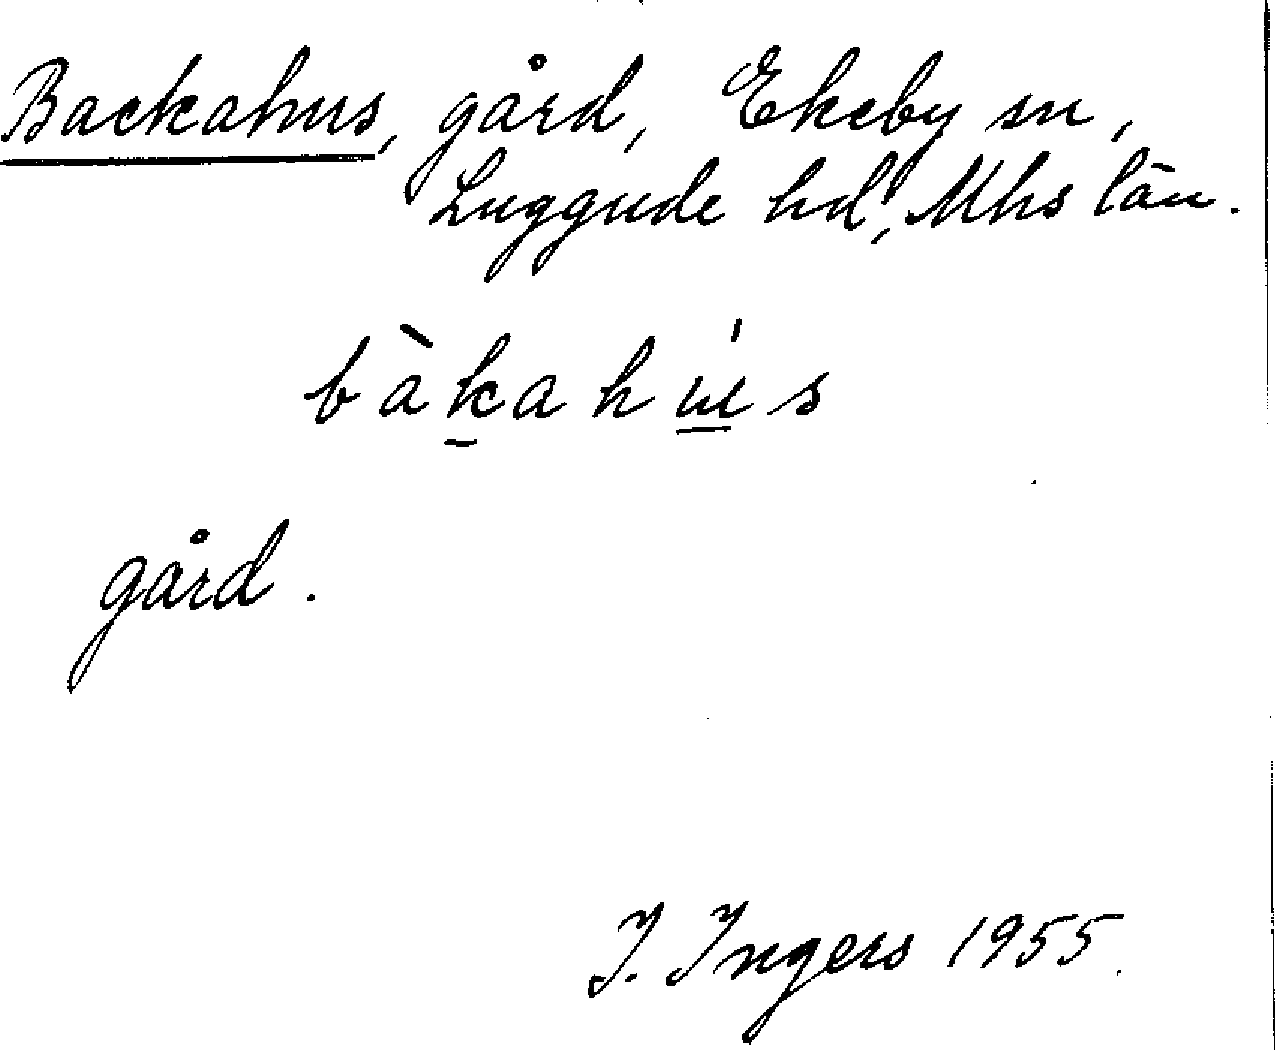 Backahus, gård, Ekeby sn,
Luggude hd, Mhs län.
bàkahús
gård.
I. Ingers 1955.